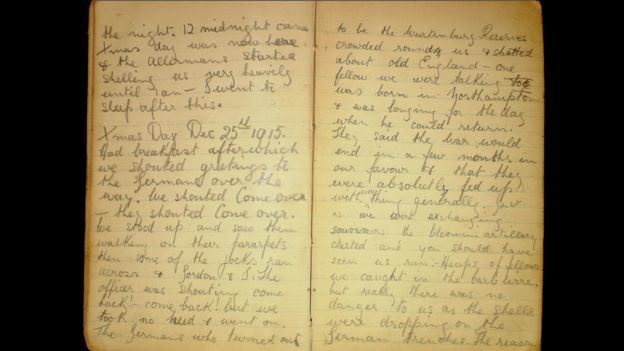 the night. 12 midnight came
Xmas day was now here
& the Allermans started
shelling us very heavily
until 1am - I went to
sleep after this.
Xmas Day Dec 25th 1915.
Had breakfast after which
we shouted greetings to
the Germans over the
way. We shouted Come over
- they shouted Come over.
We stood up and saw them
walking on their parapets
then some of the Jocks ran
across. & Gordon & I. The
officer was shouting come
back! - come back! but we
took no heed & went on.
The Germans who turned out
to be the Wurtemburg Reserves
crowded round us & chatted
about old England - one
fellow we were talking to
was born in Northampton
& was longing for the day
when he could return.
They said the war would
end in a few months in
our favour & that they
were absolutely fed up
with things generally. Just
as we were exchanging
souvenirs the bloomin artillery
started and you should have
seen us run. Heaps of fellows
we caught in the barb wire,
but really there was no
danger to us as the shells
were dropping on the
German trenches. The reason